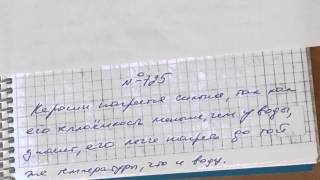 № 785
Керосин нагреется сильнее, так как
его теплоёмкость меньше, чем у воды,
значит, его легче нагреть до той
же температуры, что и воду.